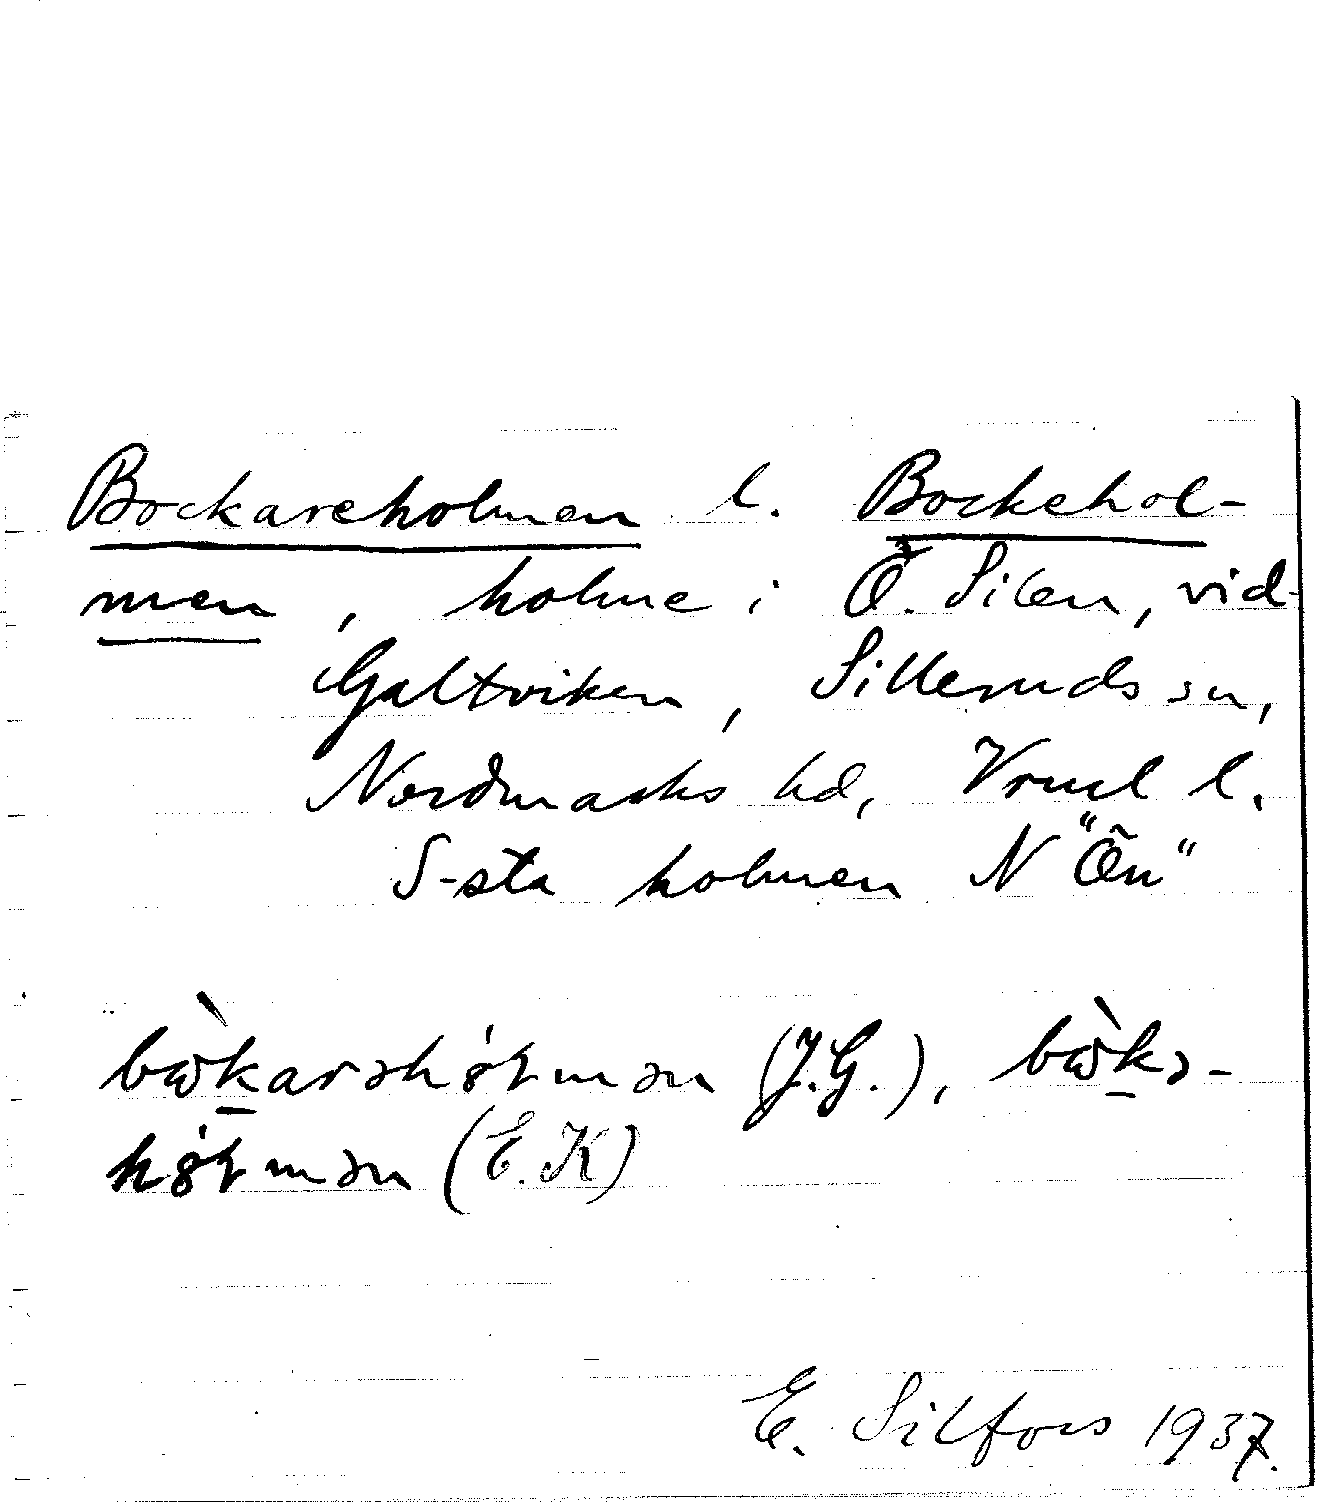 Bockareholmen l. Bockehol-
men, holme i Ö. Silen, vid
Galtviken, Silleruds sn,
Nordmarks hd, Vrml l.
S-sta holmen N "Ön"
(J.G.),
(E.K)
E. Silfors 1937.